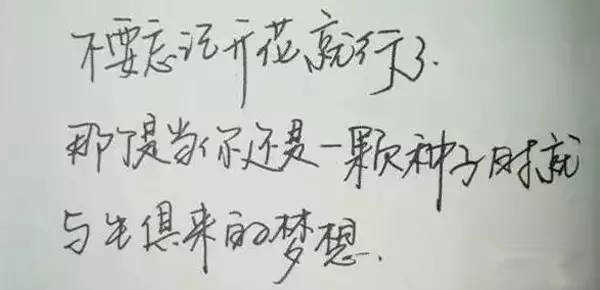 不要忘记开花就行了.
那是当你还是一颗种子时就
与生俱来的梦想.